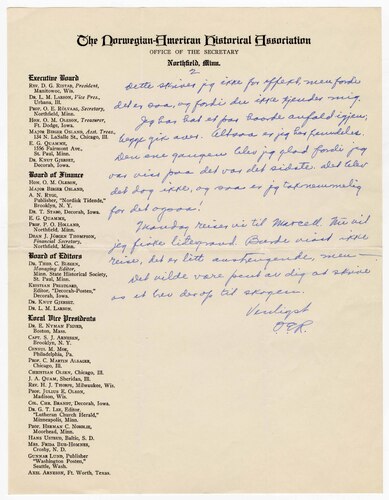 The Norwegian-American Historical Association
OFFICE OF THE SECRETARY
Northfield, Minn.
2
Executive Board
REV. D. G. RISTAD, President,
Manitowoc, Wis.
DR. L. M. LARSON, Vice Pres.,
Urbana, Ill.
PROF. O. E. RÖLVAAG, Secretary,
Northfield, Minn.
HON. O. M. OLESON, Treasurer,
Ft. Dodge, Iowa.
MAJOR BIRGER OSLAND, Asst. Treas.,
134 N. LaSalle St., Chicago, Ill.
E. G. QUAMME,
1596 Fairmont Ave.
St. Paul, Minn.
DR. KNUT GJERSET,
Decorah, Iowa.
Board of Finance
HON. O. M. OLESON,
MAJOR BIRGER OSLAND,
A. N. RYGG,
Publisher, "Nordisk Tidende,"
Brooklyn, N. Y.
DR. T. STABO, Decorah, Iowa.
E. G. QUAMME,
St. Paul, Minn.
PROF. P. O. HOLLAND,
Northfield, Minn.
DEAN J. JÖRGEN THOMPSON,
Financial Secretary,
Northfield, Minn.
Board of Editors
DR. THEO. C. BLEGEN,
Managing Editor,
Minn. State Historical Society,
St. Paul, Minn.
KRISTIAN PRESTGARD,
Editor, "Decorah-Posten,"
Decorah, Iowa.
DR. KNUT GJERSET,
DR. L. M. LARSON.
Local Vice Presidents
DR. E. NYMAN FIGVED,
Boston, Mass.
CAPT. S. J. ARNESEN,
Brooklyn, N. Y.
CONSUL M. MOE,
Philadelphia, Pa.
PROF. C. MARTIN ALSAGER,
Chicago, Ill.
CHRISTIAN OLSEN, Chicago, Ill.
J. A. QUAM, Sheridan, Ill.
REV. H. J. THORPE, Milwaukee, Wis.
PROF. JULIUS E. OLSON,
Madison, Wis.
COL. CHR. BRANDT, Decorah, Iowa.
DR. G. T. LEE, Editor,
"Lutheran Church Herald,"
Minneapolis, Minn.
PROF. HERMAN C. NORDLIE,
Moorhead, Minn.
HANS USTRUD, Baltic, S. D.
MRS. FRIDA BUE-HOMNES,
Crosby, N. D.
GUNNAR LUND, Publisher
"Washington Posten,"
Seattle, Wash.
AXEL ARNESON, Ft. Worth, Texas.
Dette skriver jeg ikke for effekt, men fordi
det er saa, og fordi du ikke kjender mig.
Jeg har hat et par haarde anfald igjen,
begge gik over. Altsaa er jeg her fremdeles.
Den ene gangen blev jeg glad fordi jeg
var viss paa det var det sidste. Det blev
det dog ikke, og saa er jeg taknemmelig
for det ogsaa!
Mandag reiser vi til Marcell. Nu vil
jeg fiske litegrand. Burde visst ikke
reise, det er litt anstrengende, men—
Det vilde være pent av dig at skrive
os et brev derop til skogen.
Venligst
O.E.R.